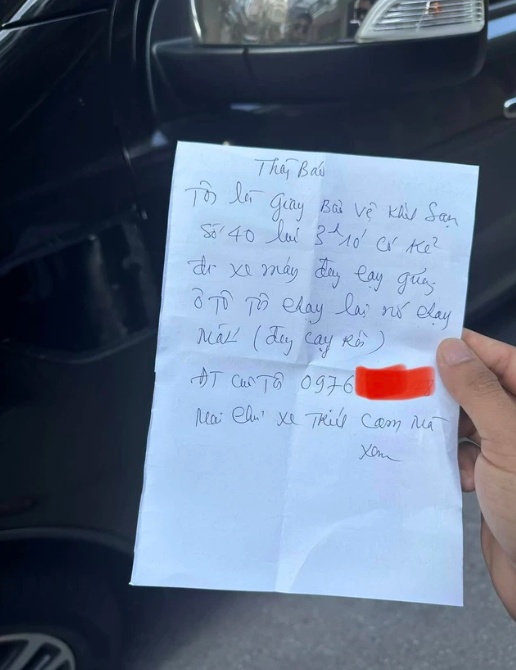 Thôg Báo
Tôi là giày Bảo vệ Khách Sạn
Số 40 lúc 3h10 có kẻ
đi xe máy đay cạy gúng
Ô TÔ TÔi chạy lại nó chạy
Mất (đay cạy Rồi)
ĐT của Tôi 0976
Mai chủ xe Trích Cam mà
xem